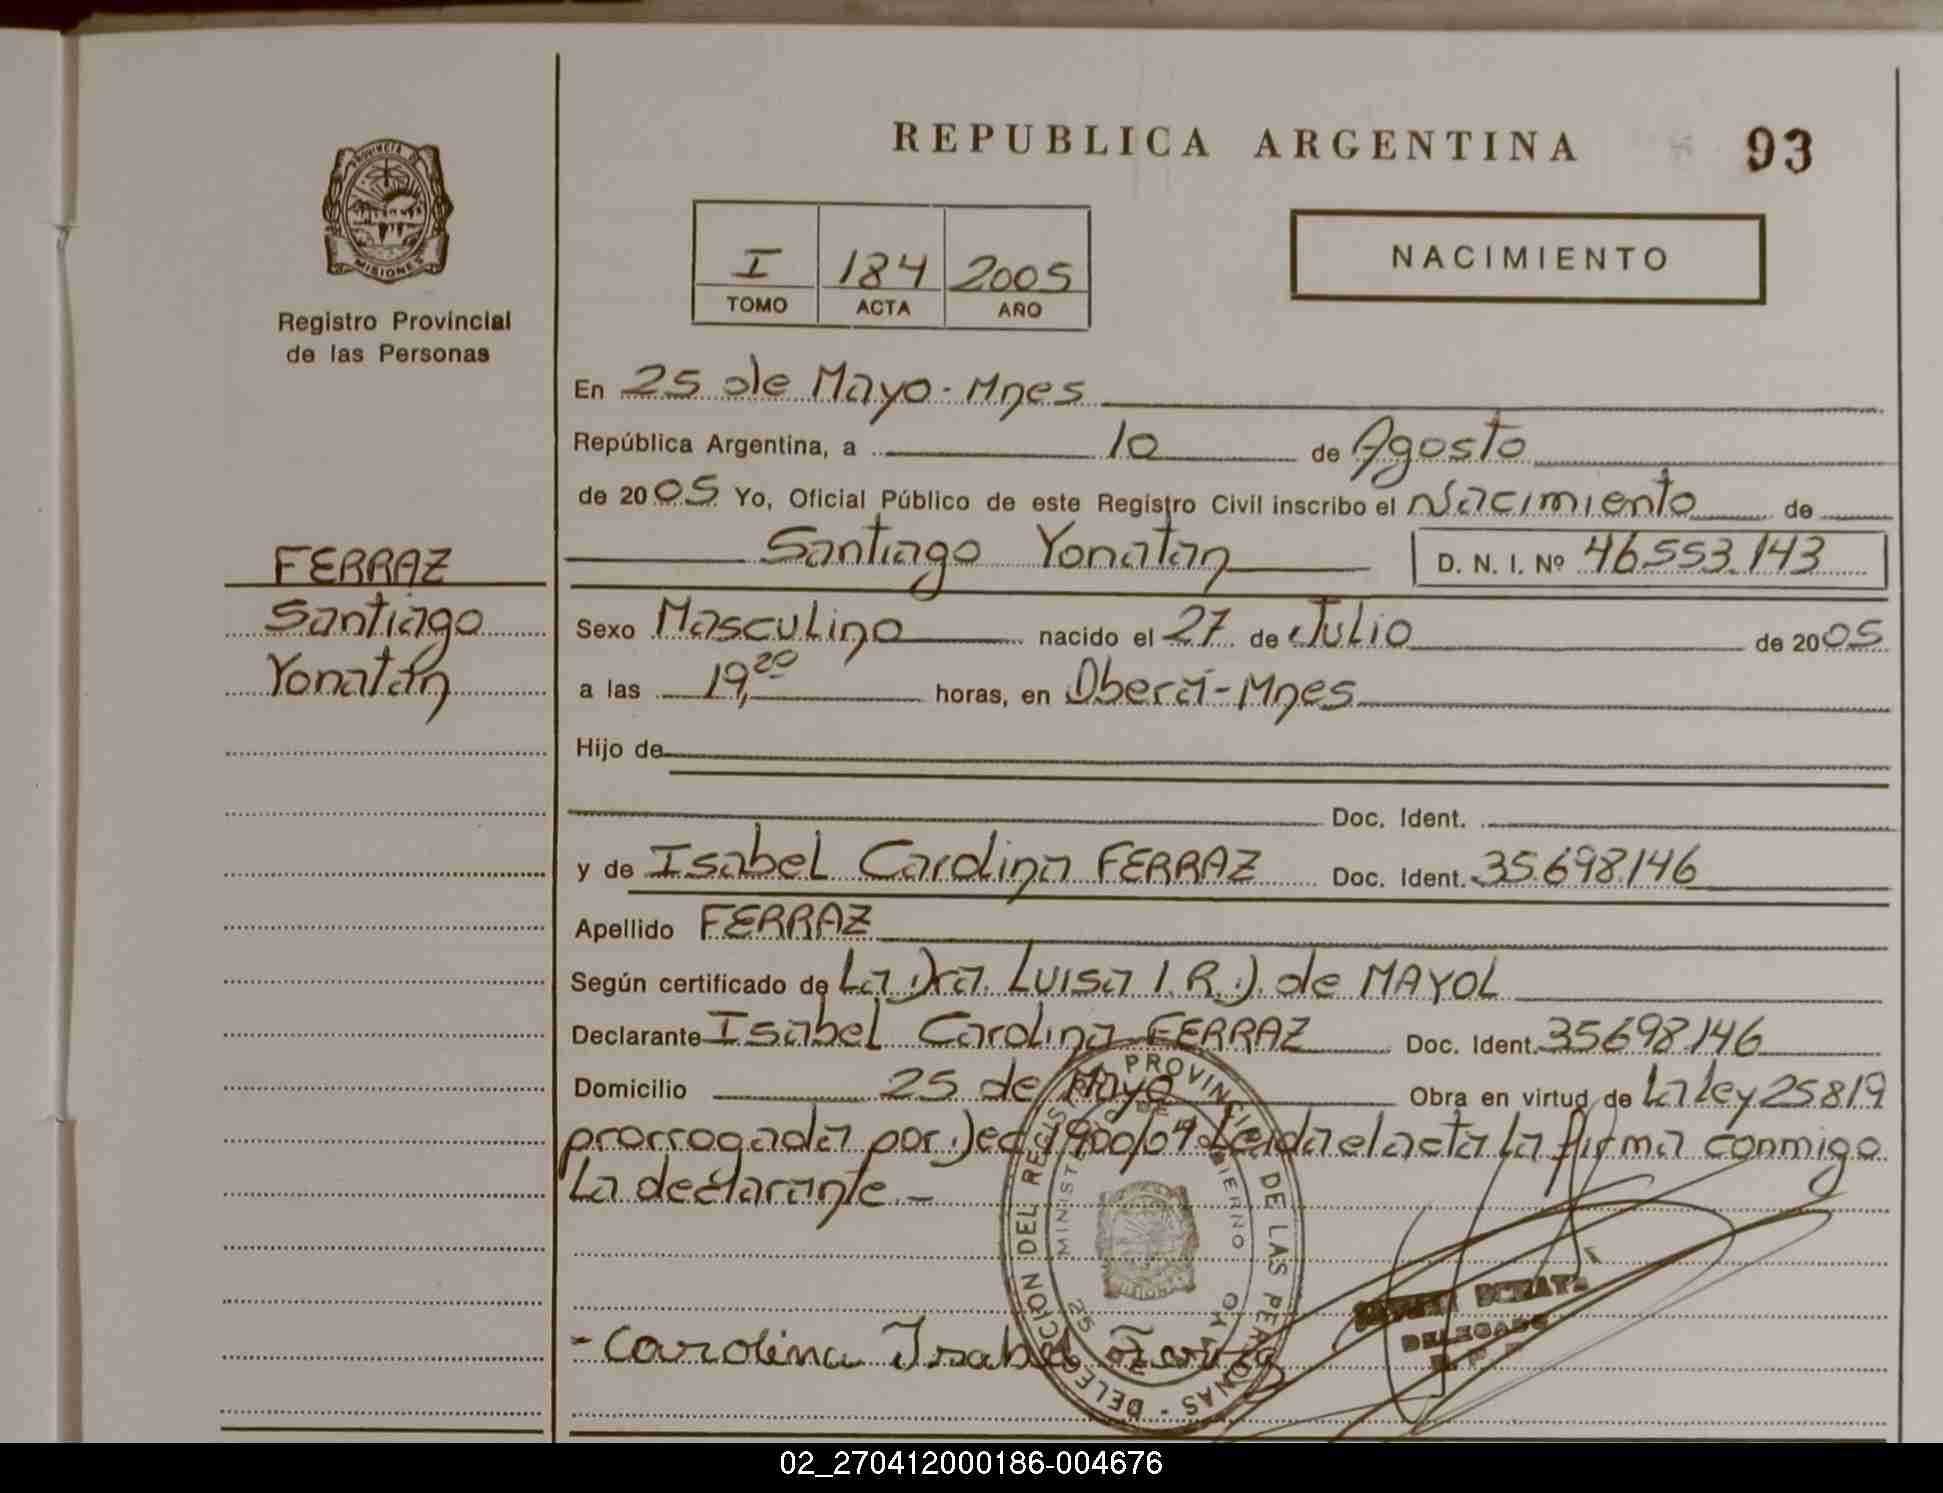 REPUBLICA ARGENTINA 93
PROVINCIA DE
MISIONES
Registro Provincial
de las Personas
I 184 2005
TOMO ACTA AÑO
NACIMIENTO
En 25 de Mayo - Mnes
República Argentina, a 10 de Agosto
de 2005 Yo, Oficial Público de este Registro Civil inscribo el Nacimiento de
Santiago Yonatan D. N. I. Nº 46.553.143
FERRAZ
Santiago
Yonatan
Sexo Masculino nacido el 27 de Julio de 2005
a las 19,20 horas, en Oberá - Mnes
Hijo de
Doc. Ident.
y de Isabel Carolina FERRAZ Doc. Ident. 35.698.146
Apellido FERRAZ
Según certificado de La Dra. Luisa I. R. D. de MAYOL
Declarante Isabel Carolina FERRAZ Doc. Ident. 35698.146
Domicilio 25 de Mayo Obra en virtud de La Ley 25819
prorrogada por Dec 1900/04 Leida el acta La firma conmigo
La declarante -
DELEGACION DEL REGISTRO PROVINCIAL DE LAS PERSONAS
MINISTERIO DE GOBIERNO
25 DE MAYO
DELEGADO
- Carolina Isabel Ferraz
02_270412000186-004676